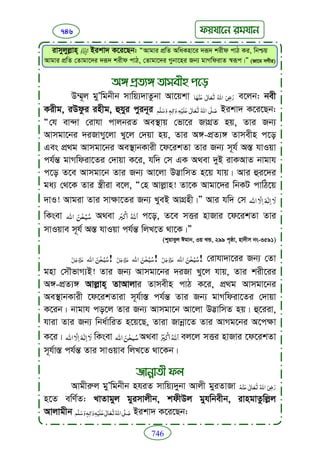 ৭৪৬
ফয়যানে রমযান
রাসুলুল্লাহ্ ﷺ ইরশাদ করেছেন: “আমার প্রতি অধিকহারে দরূদ শরীফ পাঠ কর, নিশ্চয়
আমার প্রতি তোমাদের দরূদ শরীফ পাঠ, তোমাদের গুনাহের জন্য মাগফিরাত স্বরূপ।” (জামে সগীর)
অঙ্গ প্রত্যঙ্গ তাসবীহ পড়ে
উম্মুল মু’মিনীন সায়্যিদাতুনা আয়েশা رَضِىَ اللهُ تَعَالٰى عَنْهَا বলেন: নবী
করীম, রউফুর রহীম, হুযুর পুরনূর صَلَّى اللهُ تَعَالٰى عَلَيْهِ وَاٰلِهٖ وَسَلَّم ইরশাদ করেছেন:
“যে বান্দা রোযা পালনরত অবস্থায় ভোরে জাগ্রত হয়, তার জন্য
আসমানের দরজাগুলো খুলে দেয়া হয়, তার অঙ্গ-প্রত্যঙ্গ তাসবীহ পড়ে
এবং প্রথম আসমানের অবস্থানকারী ফেরেশতা তার জন্য সূর্য অস্ত যাওয়া
পর্যন্ত মাগফিরাতের দোয়া করে, যদি সে এক অথবা দুই রাকআত নামায
পড়ে তবে আসমানে তার জন্য আলো উদ্ভাসিত হয়ে যায়। আর হুরদের
মধ্য থেকে তার স্ত্রীরা বলে, “হে আল্লাহ! তাকে আমাদের নিকট পাঠিয়ে
দাও! আমরা তার সাক্ষাতের জন্য খুবই আগ্রহী।” আর যদি সে لَا اِلٰهَ اِلَّا اللهُ
কিংবা سُبْحٰنَ الله অথবা اَللهُ اَكْبَر পড়ে, তবে সত্তর হাজার ফেরেশতা তার
সাওয়াব সূর্য অস্ত যাওয়া পর্যন্ত লিখতে থাকে।”
(শুয়াবুল ঈমান, ৩য় খন্ড, ২৯৯ পৃষ্ঠা, হাদীস নং-৩৫৯১)
سُبْحٰنَ الله عَزَّوَجَلَّ! سُبْحٰنَ الله عَزَّوَجَلَّ! سُبْحٰنَ الله عَزَّوَجَلَّ! রোযাদারের জন্য তো
মহা সৌভাগ্যই! তার জন্য আসমানের দরজা খুলে যায়, তার শরীরের
অঙ্গ-প্রত্যঙ্গ আল্লাহ্ তাআলার তাসবীহ পাঠ করে, প্রথম আসমানের
অবস্থানকারী ফেরেশতারা সূর্যাস্ত পর্যন্ত তার জন্য মাগফিরাতের দোয়া
করেন। নামায পড়লে তার জন্য আসমানে আলো উদ্ভাসিত হয়। হুরেরা,
যারা তার জন্য নির্ধারিত হয়েছে, তারা জান্নাতে তার আগমনের অপেক্ষা
করে। لَا اِلٰهَ اِلَّا اللهُ কিংবা سُبْحٰنَ الله অথবা اَللهُ اَكْبَر বললে সত্তর হাজার ফেরেশতা
সূর্যাস্ত পর্যন্ত তার সাওয়াব লিখতে থাকেন।
জান্নাতী ফল
আমীরুল মু’মিনীন হযরত সায়্যিদুনা আলী মুরতাজা رَضِىَ اللهُ تَعَالٰى عَنْهُ
হতে বর্ণিত: খাতামুল মুরসালীন, শফীউল মুযনিবীন, রাহমাতুল্লিল
আলামীন صَلَّى اللهُ تَعَالٰى عَلَيْهِ وَاٰلِهٖ وَسَلَّم ইরশাদ করেছেন:
746